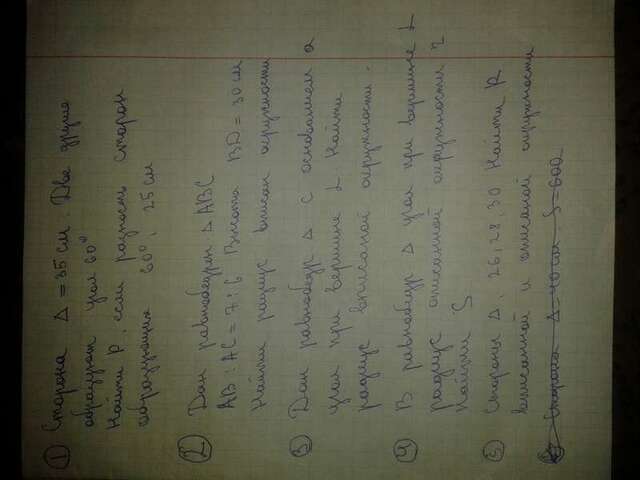 ① Сторона Δ = 35 см. Две другие
образуют угол 60°
Найти P, если разность сторон
образующих 60°, 25 см
② Дан равнобедрен Δ ABC
AB : AC = 7 : 6 Высота BD = 30 см
Найти радиус впсан окружности
③ Дан равнобедр Δ с основанием a
угол при вершине L. Найти
радиус вписаной окружности.
④ В равнобедр Δ угол при вершине L
радиус описанной окружности r
Найти S
⑤ Стороны Δ, 26, 28, 30 Найти R
вписанной и описаной окружности
Сторона Δ 40 см S = 600